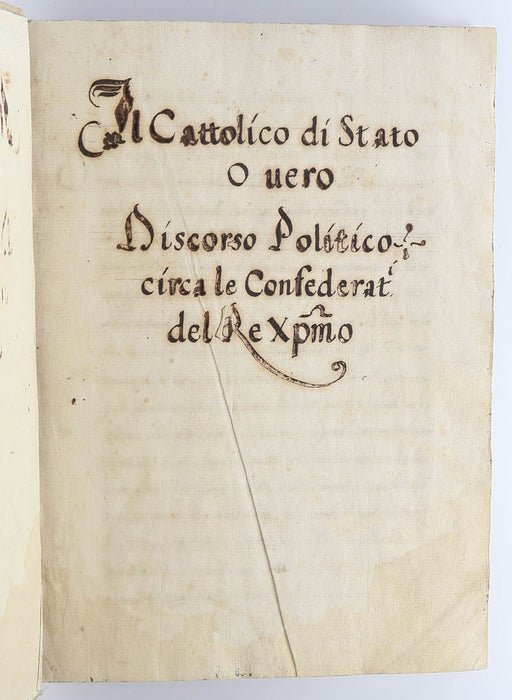 Il Cattolico di Stato
O uero
Discorso Politico
circa le Confederat.i
del Re Xp̃mo